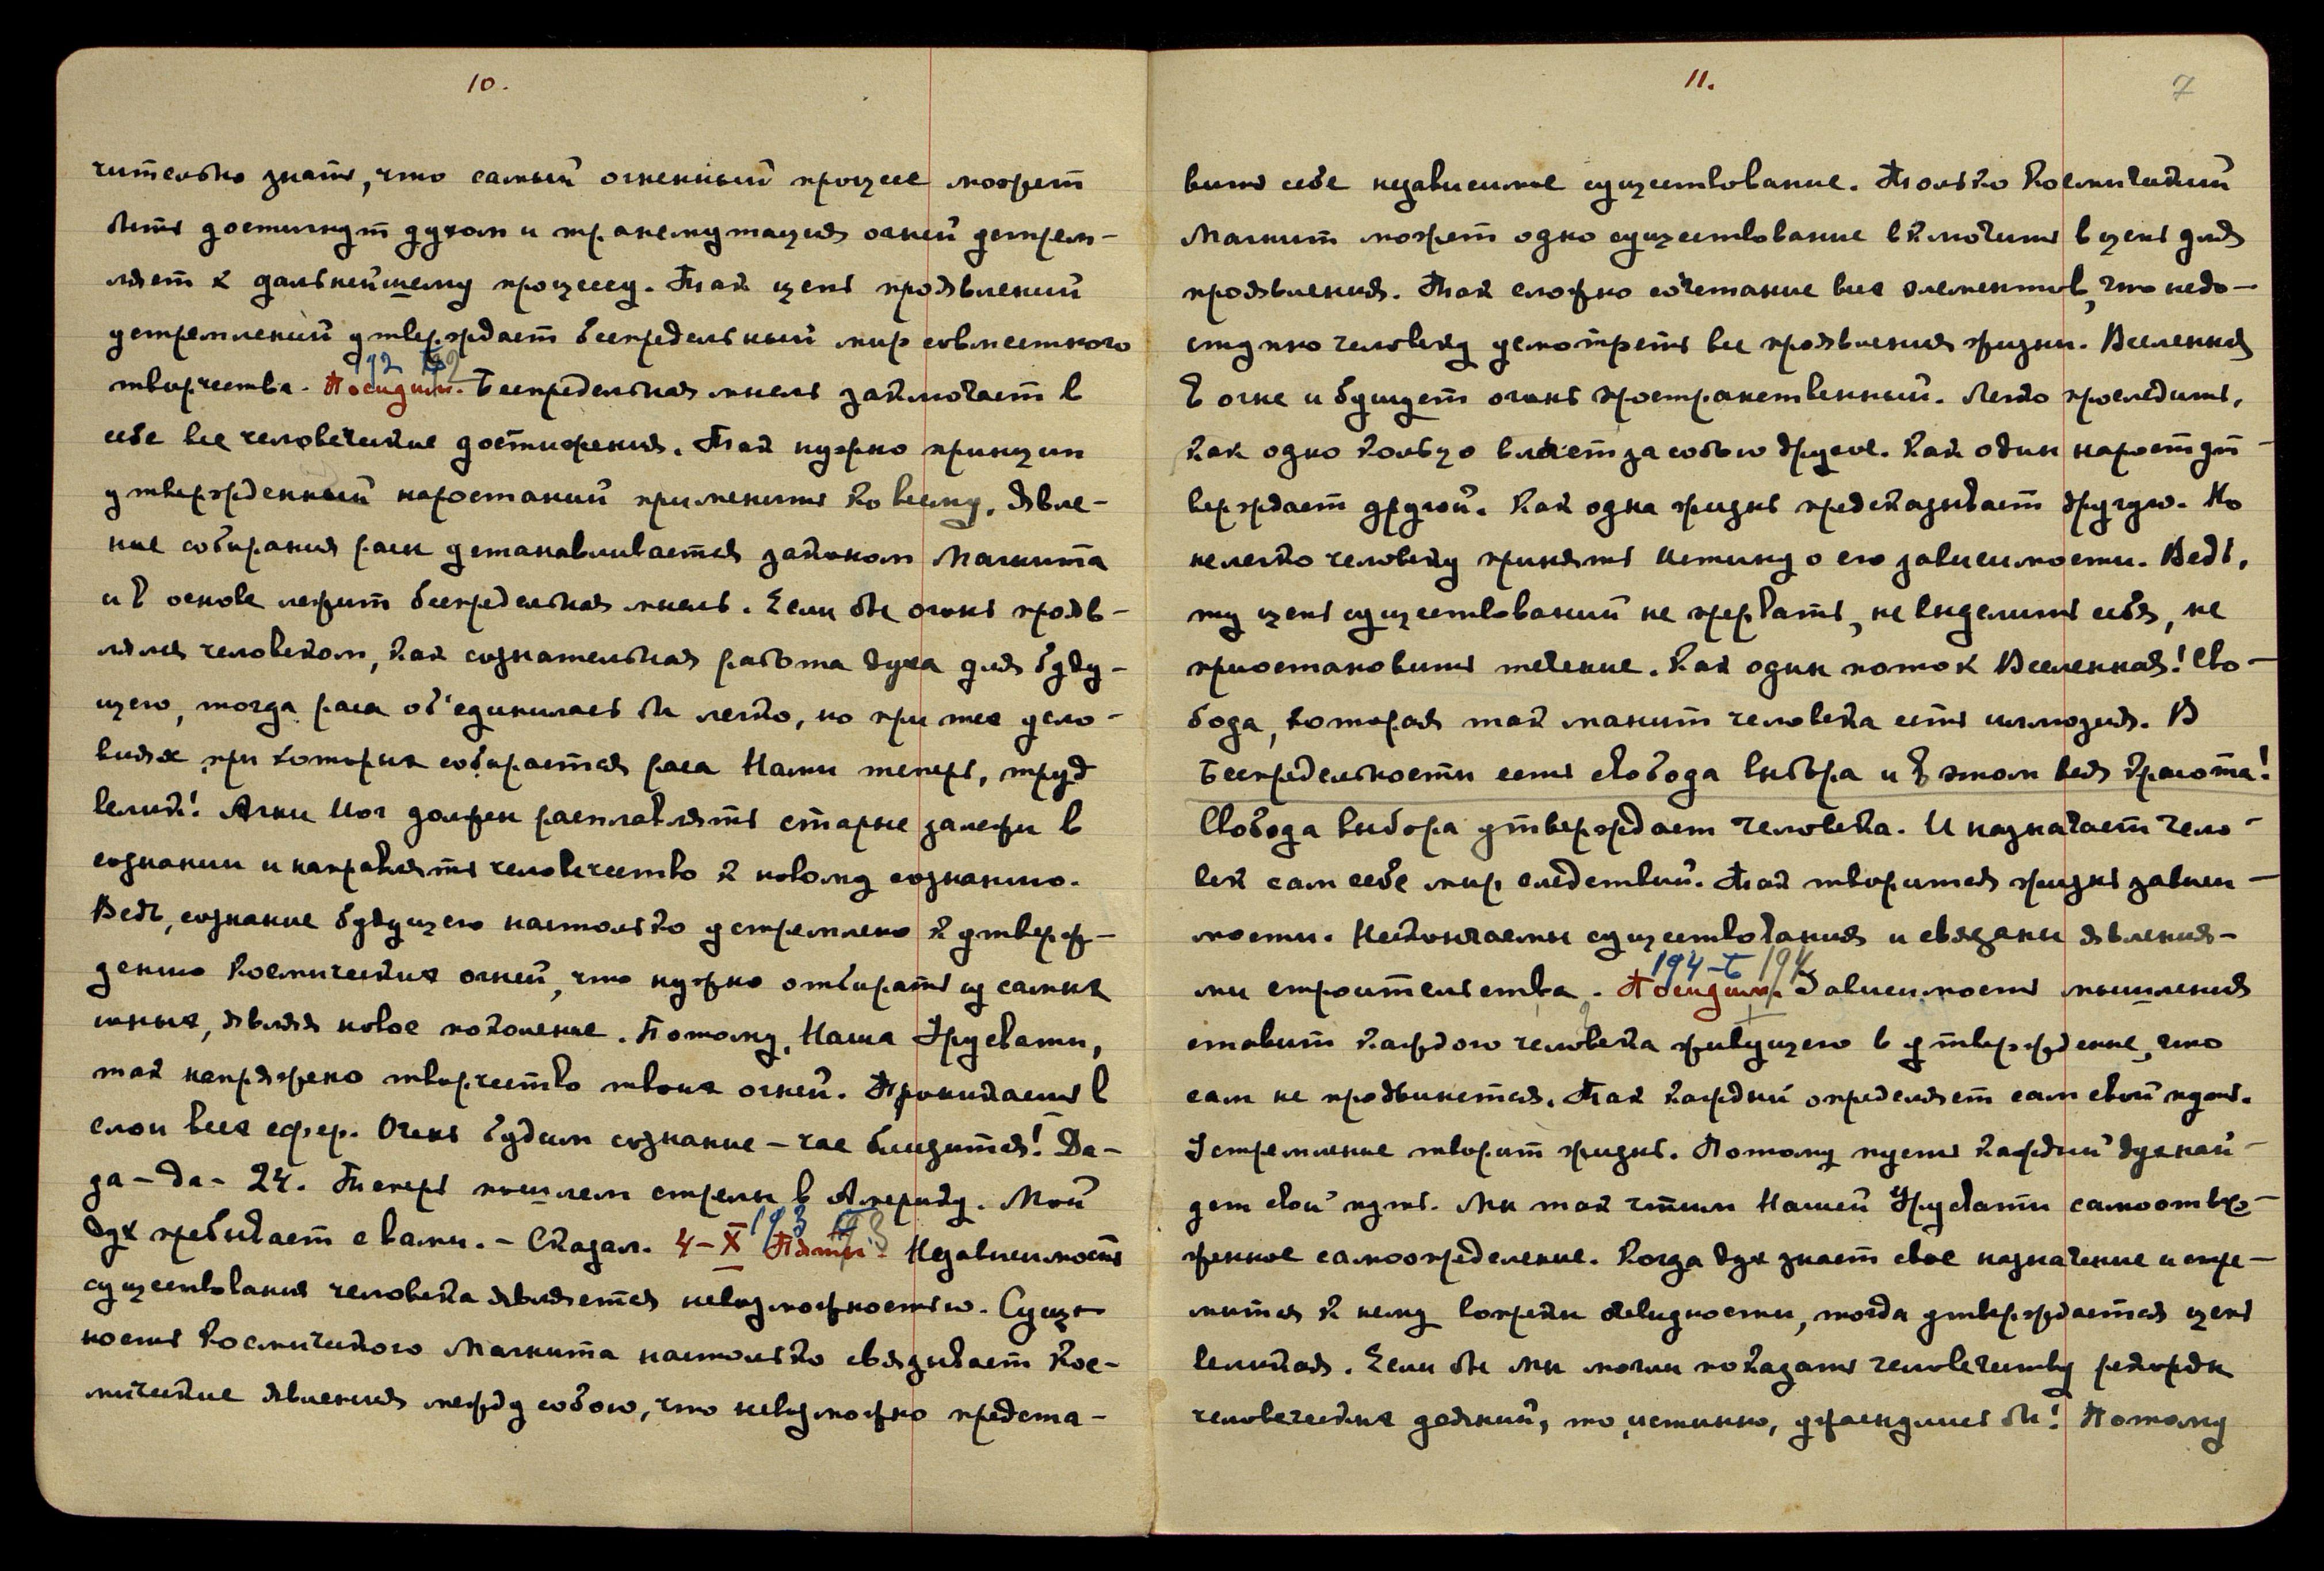 10.
чительно знать, что самый огненный процесс может
быть достигнут духом и трансмутация огней устрем-
ляет к дальнейшему процессу. Так цепь проявлений
устремлений утверждает беспредельный мир совместного
192 192
творчества. Посидим. Беспредельная мысль заключает в
себе все человеческие достижения. Так нужно принцип
утвержденный наростаний применить ко всему. Явле-
ние собирания расы устанавливается законом Магнита
и в основе лежит беспредельная мысль. Если бы огонь прояв-
лялся человеком, как сознательная работа духа для буду-
щего, тогда раса об'единилась бы легко, но при тех усло-
виях при которых собирается раса Нами теперь, труд
велик! Агни Иог должен расплавлять старые залежи в
сознании и направлять человечество к новому сознанию.
Ведь, сознание будущего настолько устремлено к утверж-
дению космических огней, что нужно отбирать из самых
юных, являя новое поколение. Потому, Наша Урусвати,
так напряжено творчество твоих огней. Проникаешь в
слои всех сфер. Очень будим сознание – час близится! Да-
да – да – 24. Теперь пошлем стрелы в Америку. Мой
193 193
дух пребывает с вами. – Сказал. 4–X Пять. Независимость
существования человека является невозможностью. Сущ-
ность космического Магнита настолько связывает кос-
мические явления между собою, что невозможно предста-
11.
7
вить себе независимое существование. Только Космический
Магнит может одно существование включить в цепь для
проявления. Так сложно сочетание всех элементов, что недо-
ступно человеку усмотреть все проявления жизни. Вселенная
в огне и бушует огонь пространственный. Легко проследить,
как одно кольцо влечет за собою другое. Как один нарост ут-
верждает другой. Как одна жизнь предсказывает другую. Но
нелегко человеку принять истину о его зависимости. Ведь,
ту цепь существований не прервать, не выделить себя, не
приостановить течение. Как один поток Вселенная! Сво-
бода, которая так манит человека есть иллюзия. В
Беспредельности есть свобода выбора и в этом вся красота!
Свобода выбора утверждает человека. И назначает чело-
век сам себе мир следствий. Так творится жизнь зависи-
мости. Нескончаемы существования и связаны явления-
194-б 194
ми строительства. Посидим. Зависимость мышления
ставит каждого человека живущего в утверждение, что
сам не продвинется. Так каждый определяет сам свой путь.
Устремление творит жизнь. Потому пусть каждый дух най-
дет свой путь. Мы так чтим Нашей Урусвати самоотвер-
женное самоопределение. Когда дух знает свое назначение и стре-
мится к нему вопреки очевидности, тогда утверждается цепь
великая. Если бы мы могли показать человечеству рекорды
человеческих деяний, то, истинно, ужаснулись бы! Потому